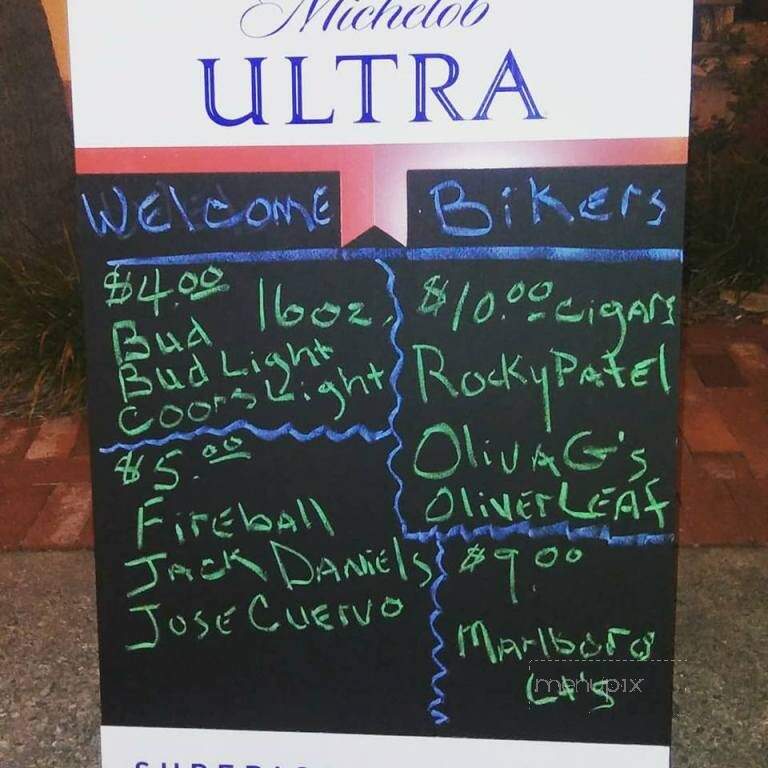 Michelob
ULTRA
Welcome Bikers
$4.00 16oz.
Bud
Bud Light
Coors Light
$5.00
Fireball
Jack Daniels
Jose Cuervo
$10.00 cigars
Rocky Patel
Oliva G's
Oliver Leaf
$9.00
Marlboro
menupix